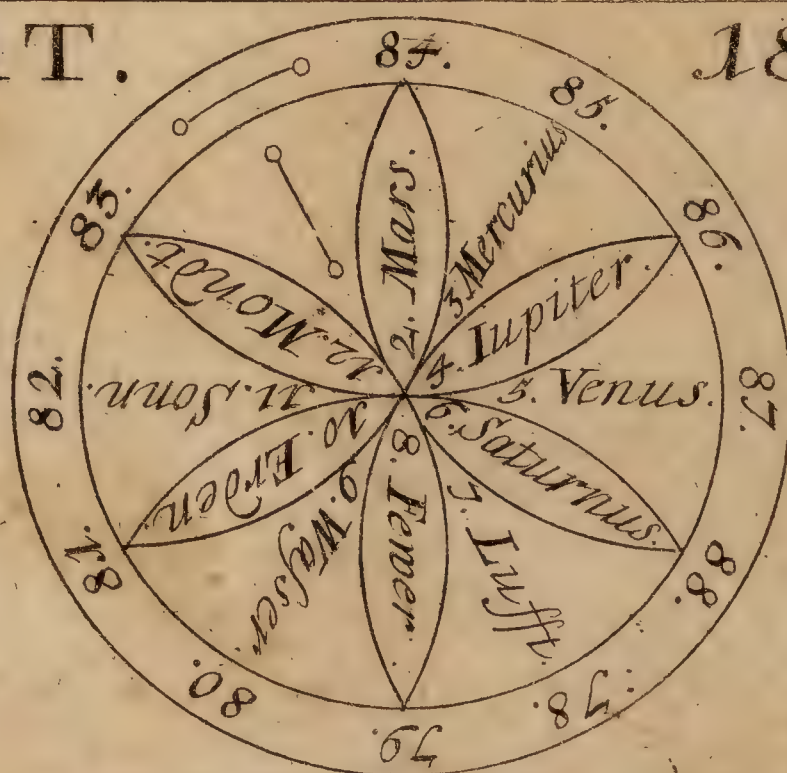 IT.
18
84.
85.
86.
87.
88.
78.
79.
80.
81.
82.
83.
2. Mars.
3. Mercurius
4. Iupiter.
5. Venus.
6. Saturnus.
7. Lufft.
8. Fewer
9. Wasser.
10. Erden.
11. Sonn.
12. Mondt.